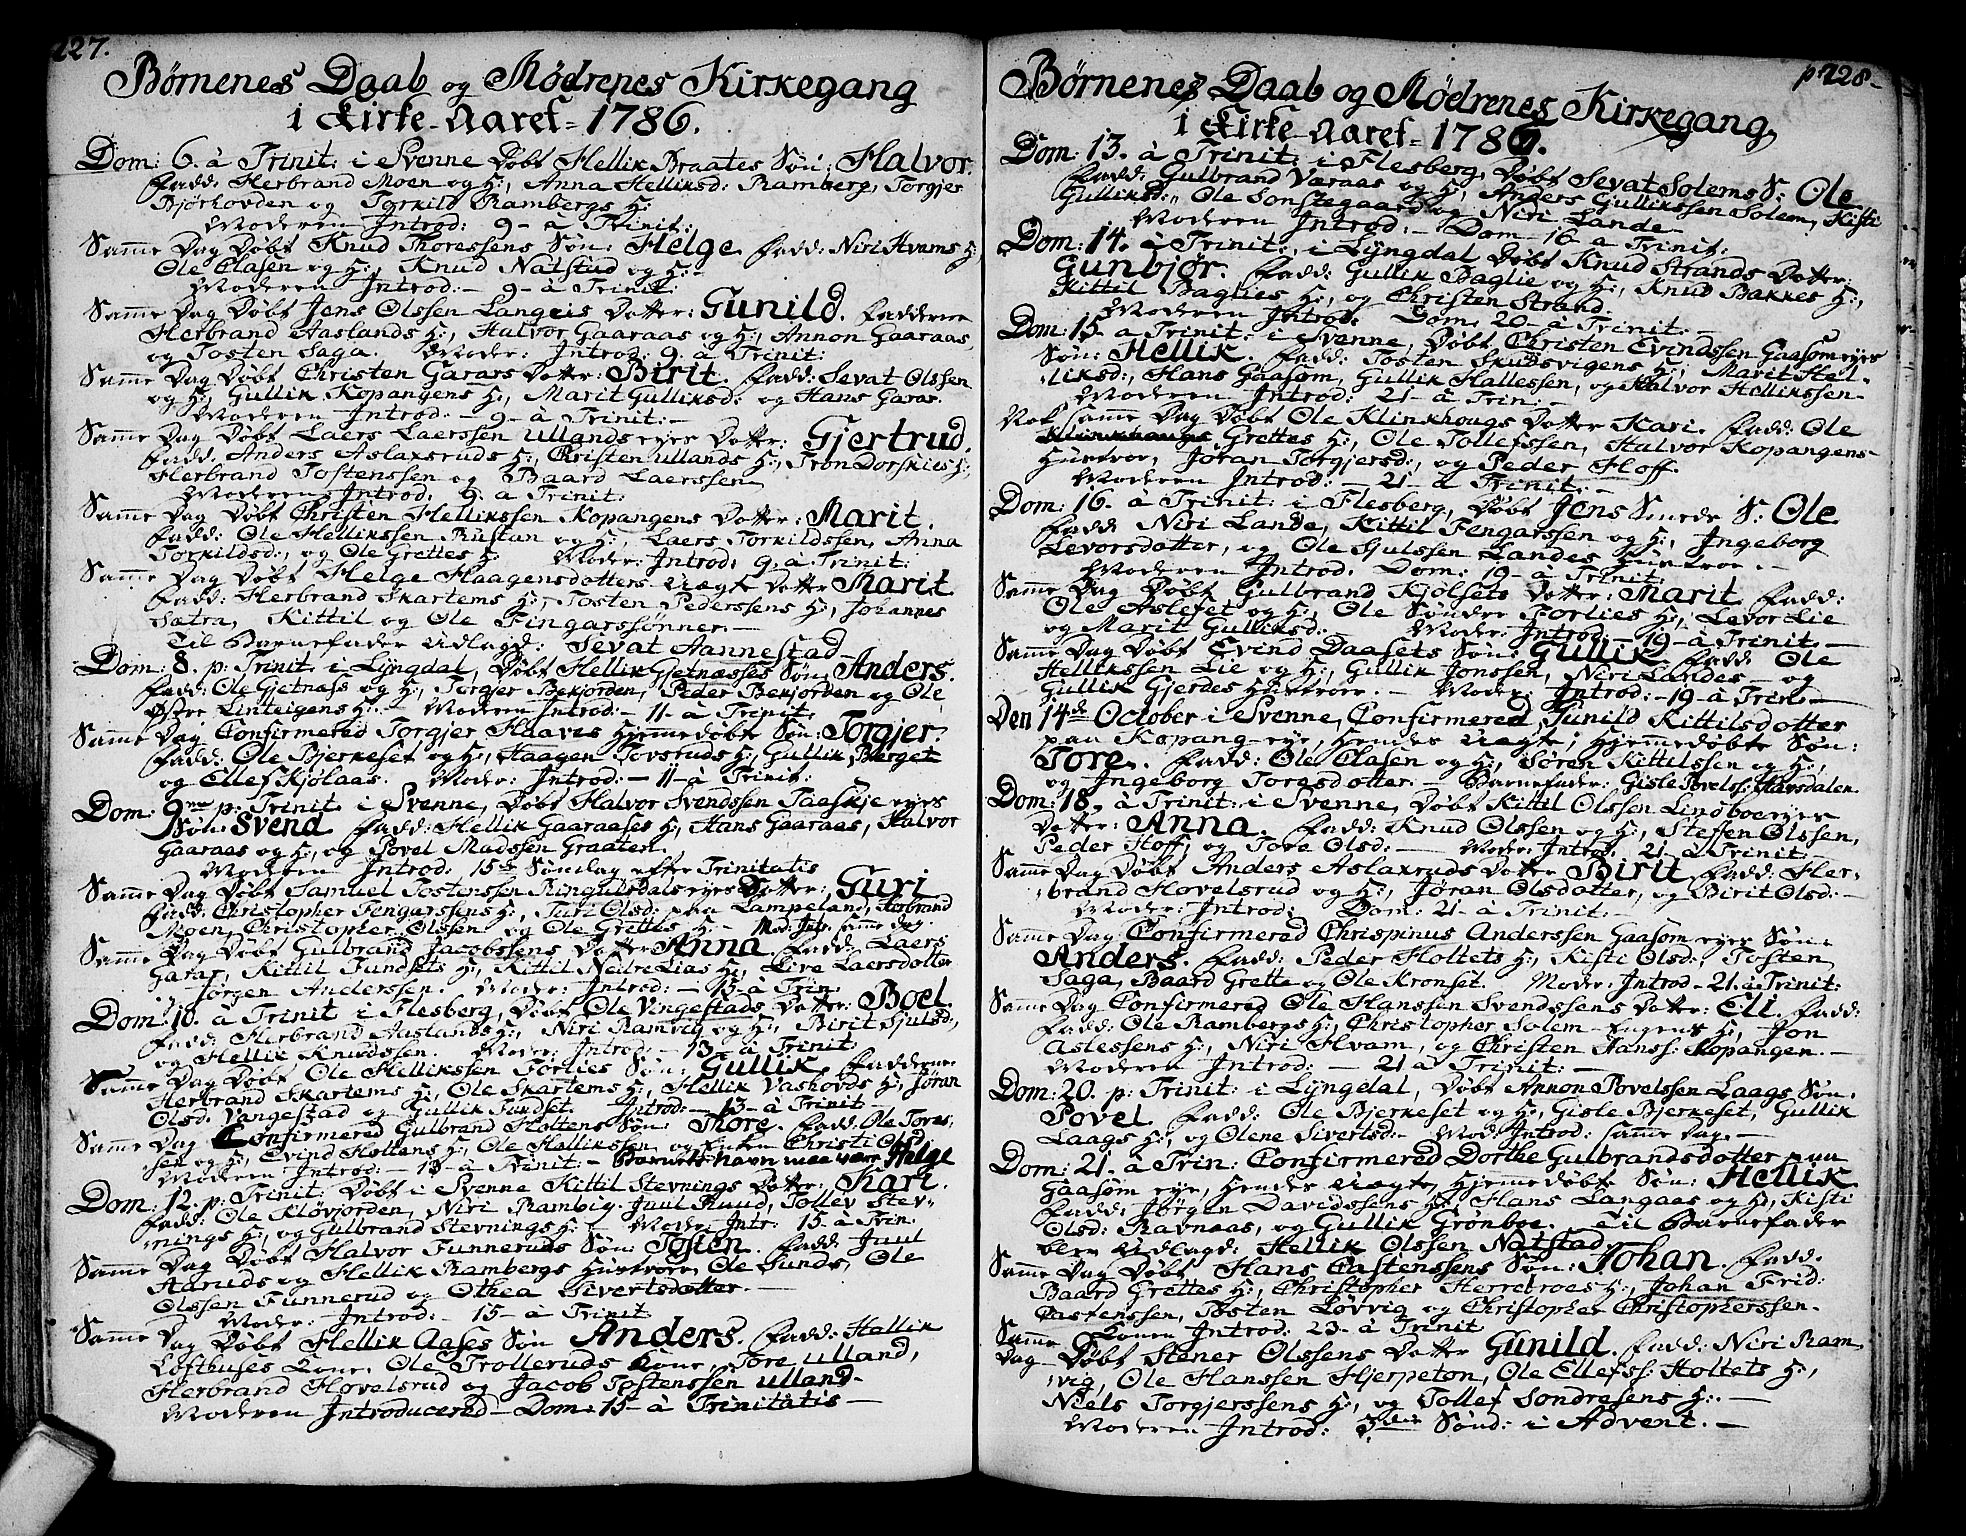 127.
Børnenes Daab og Mødrenes Kirkegang
i Kirke-Aaret-1786.
Dom: 6. à Trinit: i Svenne Døbt Hellik Braates Søn: Halvor.
Fadd: Herbrand Moen og H:, Anna Helliksd: Ramberg, Torgjer
Bjørhovden og Torkild Rambergs H:
Moderen Introd: 9- à Trinit:
Samme Dag Døbt Knud Thoressens Søn: Helge. Fadd: Niri Hvams H:,
Ole Clasen og H:, Knud Natstud og H:-
Moderen Introd:- 9- à Trinit:
Samme Dag Døbt Jens Olssen Langeis Dotter: Gunild. Fadderne
Herbrand Aaslands H:, Halvor Gaaraas og H:, Annon Gaaraas,
og Tosten Saga. Moder: Introd: 9. à Trinit:
Samme Dag Døbt Christen Garars Dotter: Birit. Fadd: Sevat Olssen
og H:, Gullik Kopangens H:, Marit Gulliksd: og Hans Garas.
Moderen Introd:- 9- à Trinit:-
Samme Dag Døbt Laers Laerssen Ullands eyes Dotter: Gjertrud.
Fadd: Anders Aslaxsruds H:, Christen Ullands H:, Tron Dorskies H:,
Herbrand Tostenssen og Baard Laerssen
Moderen Introd: 9. a Trinit:
Samme Dag Døbt Christen Hellikssen Kopangens Dotter: Marit.
Fadd: Ole Hellikssen Rustan og H:, Laers Torkildssen, Anna
Torkildsd:, og Ole Grettes H: Moder: Introd: 9. a Trinit:
Samme Dag Døbt Helge Haagensdotters uægt Dotter Marit
Fadd: Herbrand Skartems H:, Tosten Pederssens H:, Johannes
Sætra, Kittil og Ole Fingarssønner.-
Til Barnefader Udlagd: Sevat Aannestad-
Dom: 8. p: Trinit: i Lyngdal, Døbt Hellik Gjetnæsses Søn: Anders.
Fadd: Ole Gjetnæss og H:, Torgjer Bekjorden, Peder Bekjorden og Ole
Østre Linteigens H:- Moderen Introd:- 11- à Trinit:
Samme Dag Confirmered Torgjer Haaves Hjemmedøbte Søn: Torgjer.
Fadd: Ole Bjerkeset og H:, Haagen Tovsruds H:, Gullik Berget
og Ellef Kjølaas. Moder: Introd:- 11- à Trinit:
Dom: 9ne p: Trinit: i Svenne, Døbt Halvor Svendssen Taaskje eyes
Søn: Svend Fadd: Hellik Gaaraases H:, Hans Gaaraas, Halvor
Gaaraas og H:, og Povel Madssen Graaten.
Moderen Introd: 15de Søndag efter Trinitatis
Samme Dag Døbt Samuel Tostenssen Ringulsdals eyes Dotter: Guri
Fadd: Christopher Fengarssens H:, Turi Olsd: paa Lampeland, Herbrand
Moen, Christopher Olssen og Ole Grettes H:- Mod: Intr: samme dag-
Samme Dag Døbt Gulbrand Jacobssens Dotter Anna. Fadd: Laers
Garas, Kittil Fundsets H:, Kittil Nedre Lias H:, Live Laersdotter
Jørgen Anderssen. Moder: Introd:- 15- à Trin:
Dom: 10. a Trinit i Flesberg, Døbt Ole Vingestads Dotter: Boel.
Fadd: Herbrand Aaslands H:, Niri Ramvig og H:, Birit Sjulsd:,
og Hellik Knudssen. Moder: Introd:- 13- à Trinit
Samme Dag Døbt Ole Hellikssen Forlies Søn: Gullik. Fadderne
Herbrand Skartems H:, Ole Skartems H:, Hellik Vaskovds H:, Jøran
Olsd: Vangestad og Gullik Fundset. Introd:- 13- à Trinit
Samme Dag Confirmered Gulbrand Holtens Søn: Thore. Fadd: Ole Tores,
sen og H:, Evind Holtens H:, Ole Hellikssen og Enken Christi Olsd:
Moderen Introd:- 13- à Trinit:- Barnets Navn maa være Helge
Dom: 12. p: Trinit: Døbt i Svenne Kittil Stevnings Dotter: Kari.
Fadd: Ole Kløvjorden, Niri Rambig, Juul Ruud, Tollev Stev-
nings H:, og Gulbrand Stevnings H:- Moder: Intr: 15- à Trin.
Samme Dag Døbt Halvor Funneruds Søn: Tosten. Fadd: Juul
Aaruds og Hellik Rambergs Hustroer, Ole Sunds, Ole
Olssen Funnerud og Othea Sivertsdotter.-
Moder: Introd: 15- à Trinit
Samme Dag Døbt Hellik Aases Søn Anders. Fadd: Hallik
Lofthuses Kone, Ole Trolleruds Kone, Tore Ulland,
Herbrand Hovelsrud og Jacob Tostenssen Ulland-
Moderen Introducered- Dom: 15- à Trinitatis-
p. 128-
Børnenes Daab og Mødrenes Kirkegang
i Kirke-Aaret-1786.
Dom: 13. à Trinit: i Flesberg, Døbt Sevat Solems S: Ole
Fadd: Gulbrand Varaas og H:, Anders Gullikssen Solem, Kisti
Gulliksd:, Ole Sonstegaard og Niri Lande
Moderen Introd:- Dom- 16- a Trinit:
Dom: 14. à Trinit: i Lyngdal Døbt Knud Strands Dotter:
Gunbjør. Fadd: Gullik Baglie og H:, Knud Bakkes H:,
Kittil Baglies H:, og Christen Strand
Moderen Introd: Dom: 20- à Trinit:-
Dom: 15- a Trinit: i Svenne, Døbt Christen Evindssen Gaasom eyes
Søn: Hellik. Fadd: Tosten Skudsvigens H:, Marit Hel-
liksd:, Hans Gaasom, Gullik Hallessen, og Halvor Hellikssen-
Moderen Introd: 21- à Trin:-
Nok samme Dag Døbt Ole Klinkhougs Dotter Kari. Fadd: Ole
Klinkhougs Grettes H:, Ole Tollefssen, Halvor Kopangens-
Hustroe, Jøran Torgjersd:, og Peder Hoff.
Moderen Introd:- 21- à Trinit:-
Dom: 16. à Trinit: i Flesberg, Døbt Jens Smeds S: Ole
Fadd: Niri Lande, Kittil Fengarssen og H:, Ingeborg
Levorsdotter, og Ole Sjulssen Landes Hustroe.-
Moderen Introd: Dom: 19- à Trinit:
Samme Dag Døbt Gulbrand Kjølsets Dotter: Marit Fadd:
Ole Aslefet og H:, Ole Søndre Forlies H:, Levor Lie
og Marit Gulliksd: Moder: Introd:- 19- à Trinit-
Samme Dag Døbt Evind Daasets Søn: Gullik Fadd: Ole
Hellikssen Lie og H:, Gullik Jonssen, Niri Landes- og
Gullik Gjerdes Hustroer.- Moder: Introd:- 19- à Trin:-
Den 14de October i Svenne, Confirmered Gunild Kittilsdotter
paa Kopang-eye, Hendes Uægte, Hjemmedøbte Søn:
Tore. Fadd: Ole Clasen og H:, Søren Kittilssen og H:,
og Ingeborg Toresdotter.- Barnefader: Gisle Povelss: Havsdalen.
Dom: 18. à Trinit: i Svenne, Døbt Kittil Olssen Lindboe eyes
Dotter: Anna. Fadd: Knud Olssen og H:, Steffen Olssen,
Peder Hoff, og Tore Olsd:- Moder: Introd: 21- à Trinit.
Samme Dag Døbt Anders Aslaxruds Dotter Birit. Fadd: Her-
brand Hovelsrud og H:, Jøran Olsdotter, og Birit Olsd:-
Moder: Introd: Dom: 21- à Trinit:-
Samme Dag Confirmered Chrispinus Anderssen Gaasom eyes Søn:
Anders. Fadd: Peder Holtets H:, Kisti Olsd:, Tosten
Saga, Baard Grette og Ole Kronset. Moder: Introd- 21. à Trinit:
Samme Dag Confirmered Ole Hanssen Svendssens Dotter: Eli. Fadd:
Fadd: Ole Rambergs H:, Christopher Solem-Engens H:, Jon
Aslessens H:, Niri Hvam, og Christen Hanss: Kopangen.-
Moderen Introd:- 21 a Trinit:-
Dom: 20. p: Trinit: i Lyngdal, Døbt Annon Povelssen Laags Søn:
Povel. Fadd: Ole Bjerkeset og H:, Gisle Bjerkeset, Gullik
Laags H:, og Olene Sivertsd:- Mod: Introd: samme Dag.-
Dom: 21. à Trin: Confirmered Dorthe Gulbrandsdotter paa
Gaasom eye, Hendes uægte, Hjemmedøbte Søn: Hellik
Fadd: Jørgen Davidssens H:, Hans Langaas og H:, Kisti
Olsd: Ravnaas, og Gullik Grønboe. Til Barnefader
blev Udlagd: Hellik Olssen Natstad.
Samme Dag Døbt Hans Castenssens Søn: Johan. Fadd:
Baard Grettes H:, Christopher Herretroes H:, Johan Frid:
Castenssen, Tosten Lovvig og Christopher Christopherssen.
Konen Introd: 23- à Trinit
Samme Dag- Døbt Stener Olssens Dotter Gunild. Fadd: Niri Ram,
vig, Ole Hanssen Hjerpeton, Ole Ellefss: Holtets H:,
Niels Torgjerssens H:, og Tollef Sondresens H:.-
Moderen Introd: 3die Sønd: i Advent.-